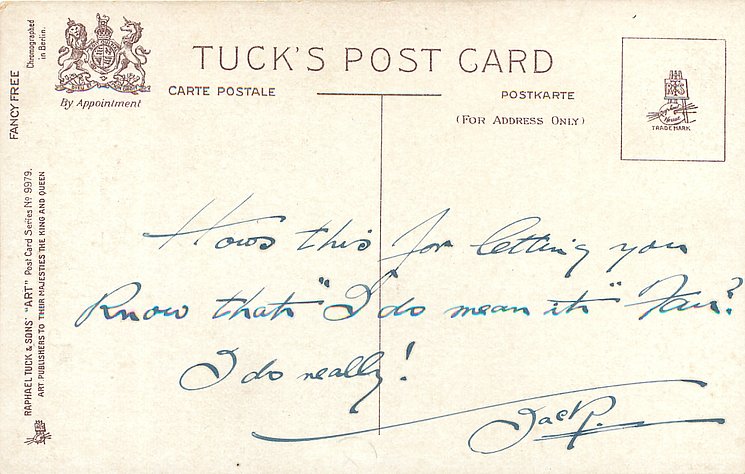 TUCK'S POST CARD
CARTE POSTALE
POSTKARTE
(FOR ADDRESS ONLY)
By Appointment
TRADE MARK
Chromographed
in Berlin.
FANCY FREE
RAPHAEL TUCK & SONS' "ART" Post Card Series No 9979.
ART PUBLISHERS TO THEIR MAJESTIES THE KING AND QUEEN
Hows this for letting you
Know that "I do mean it"
I do really!
Jack.